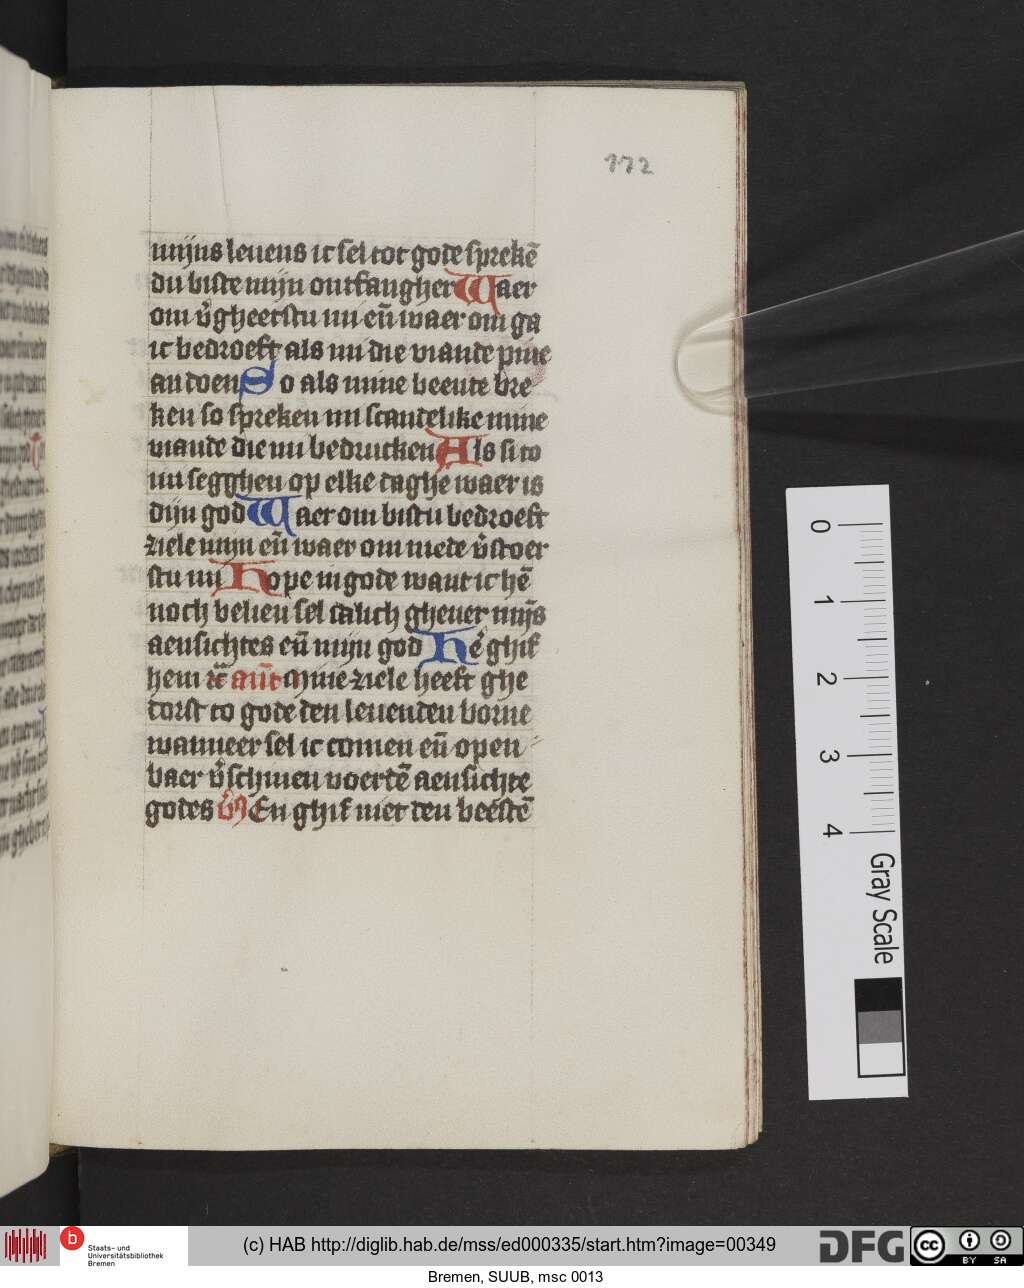 172
mijns leuens ic sel tot gode sprekē
du biste mijn ontfangher Waer
om v̄gheetstu mi eñ waer om ga
ic bedroeft als mi die viande pine
an doen So als mine beente bre
ken so spreken mi scandelike mine
viande die mi bedrucken Als si to
mi segghen op elke daghe waer is
dijn god Waer om bistu bedroeft
ziele mijn eñ waer om mede v̄stoer
stu mi Hope in gode want ic hē
noch belien sel salich gheuer mijs
aensichtes eñ mijn god Hē ghif
hem r̄c añt Mine ziele heeft ghe
dorst to gode den leuenden borne
wanneer sel ic comen eñ open
baer v̄schinen voer dē aensichte
godes vs̄ En ghif niet den beestē
0
1
2
3
4
Gray Scale
b
Staats- und
Universitätsbibliothek
Bremen
(c) HAB http://diglib.hab.de/mss/ed000335/start.htm?image=00349
DFG
cc
BY SA
Bremen, SUUB, msc 0013